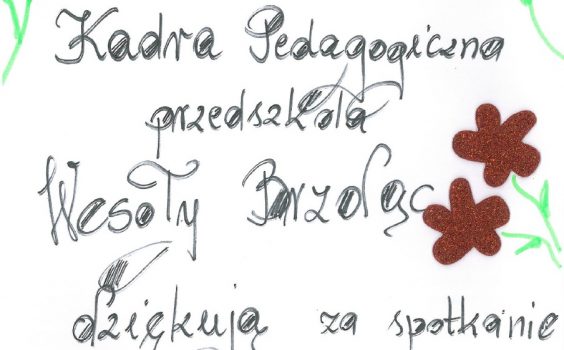 Kadra Pedagogiczna
przedszkola
Wesoły Brzdąc
dziękują za spotkanie